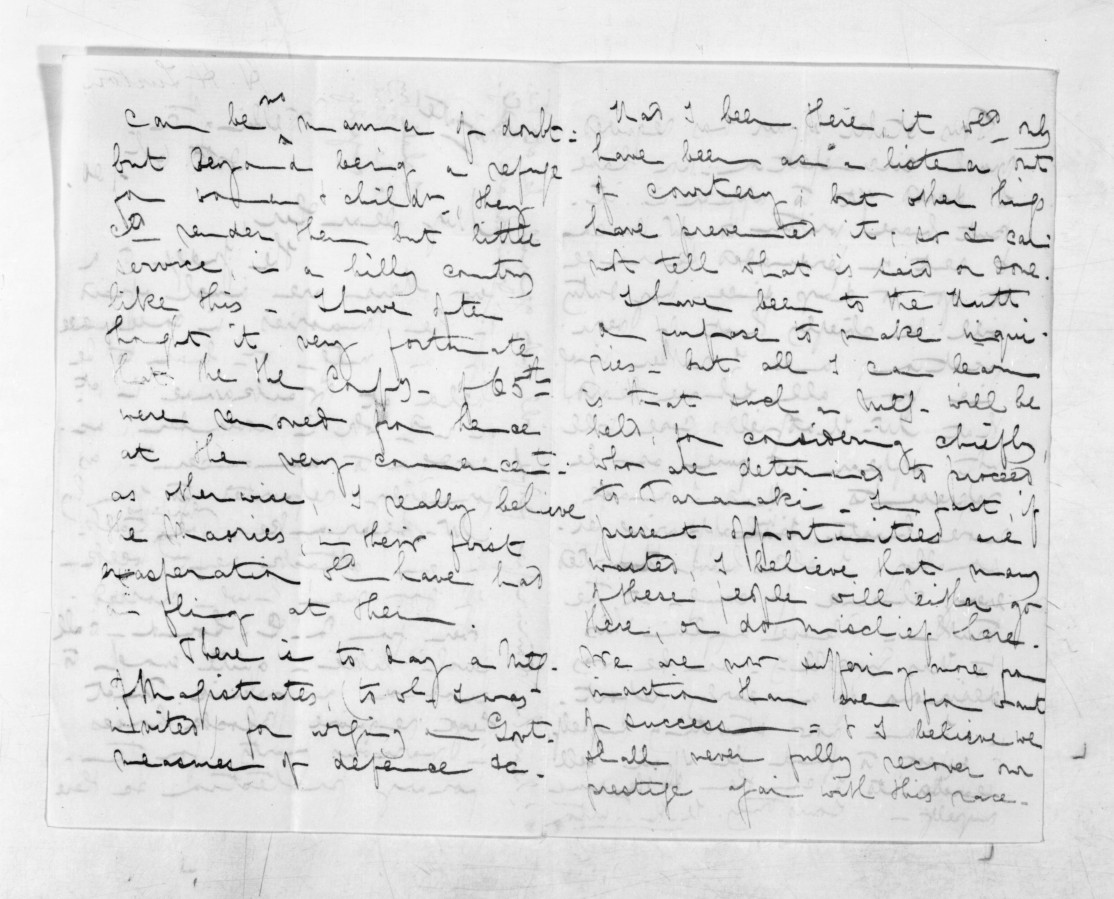 can be no manner of doubt -
but beyond being a refuge
for women & childn. they
cd. render them but little
service, in a hilly country
like this - I have often
thought it very fortunate
that the the Compy. of 65th
were removed from hence
at the very commencet.
as otherwise, I really believe
the Maories, in their first
exasperation wd. have had
a fling at them.
There is to day a Mtg.
of Magistrates, (to wh. I was
invited for urging on Govt.
measures of defence &c.
Had I been there, it wod. only
have been as a listener out
of courtesy, but other things
have prevented it; so I can
not tell what is said or done.
I have been to the Hutt
on purpose to make inqui-
ries - but all I can learn
is that such a Mtg. will be
held, for considering chiefly,
who are determined to proceed
to Taranaki - In fact, if
present opportunities are
wasted, I believe that many
of these people will either go
there, or do mischief here.
We are now suffering more from
inaction than even from want
of success - & I believe we
shall never fully recover our
prestige again with this race.